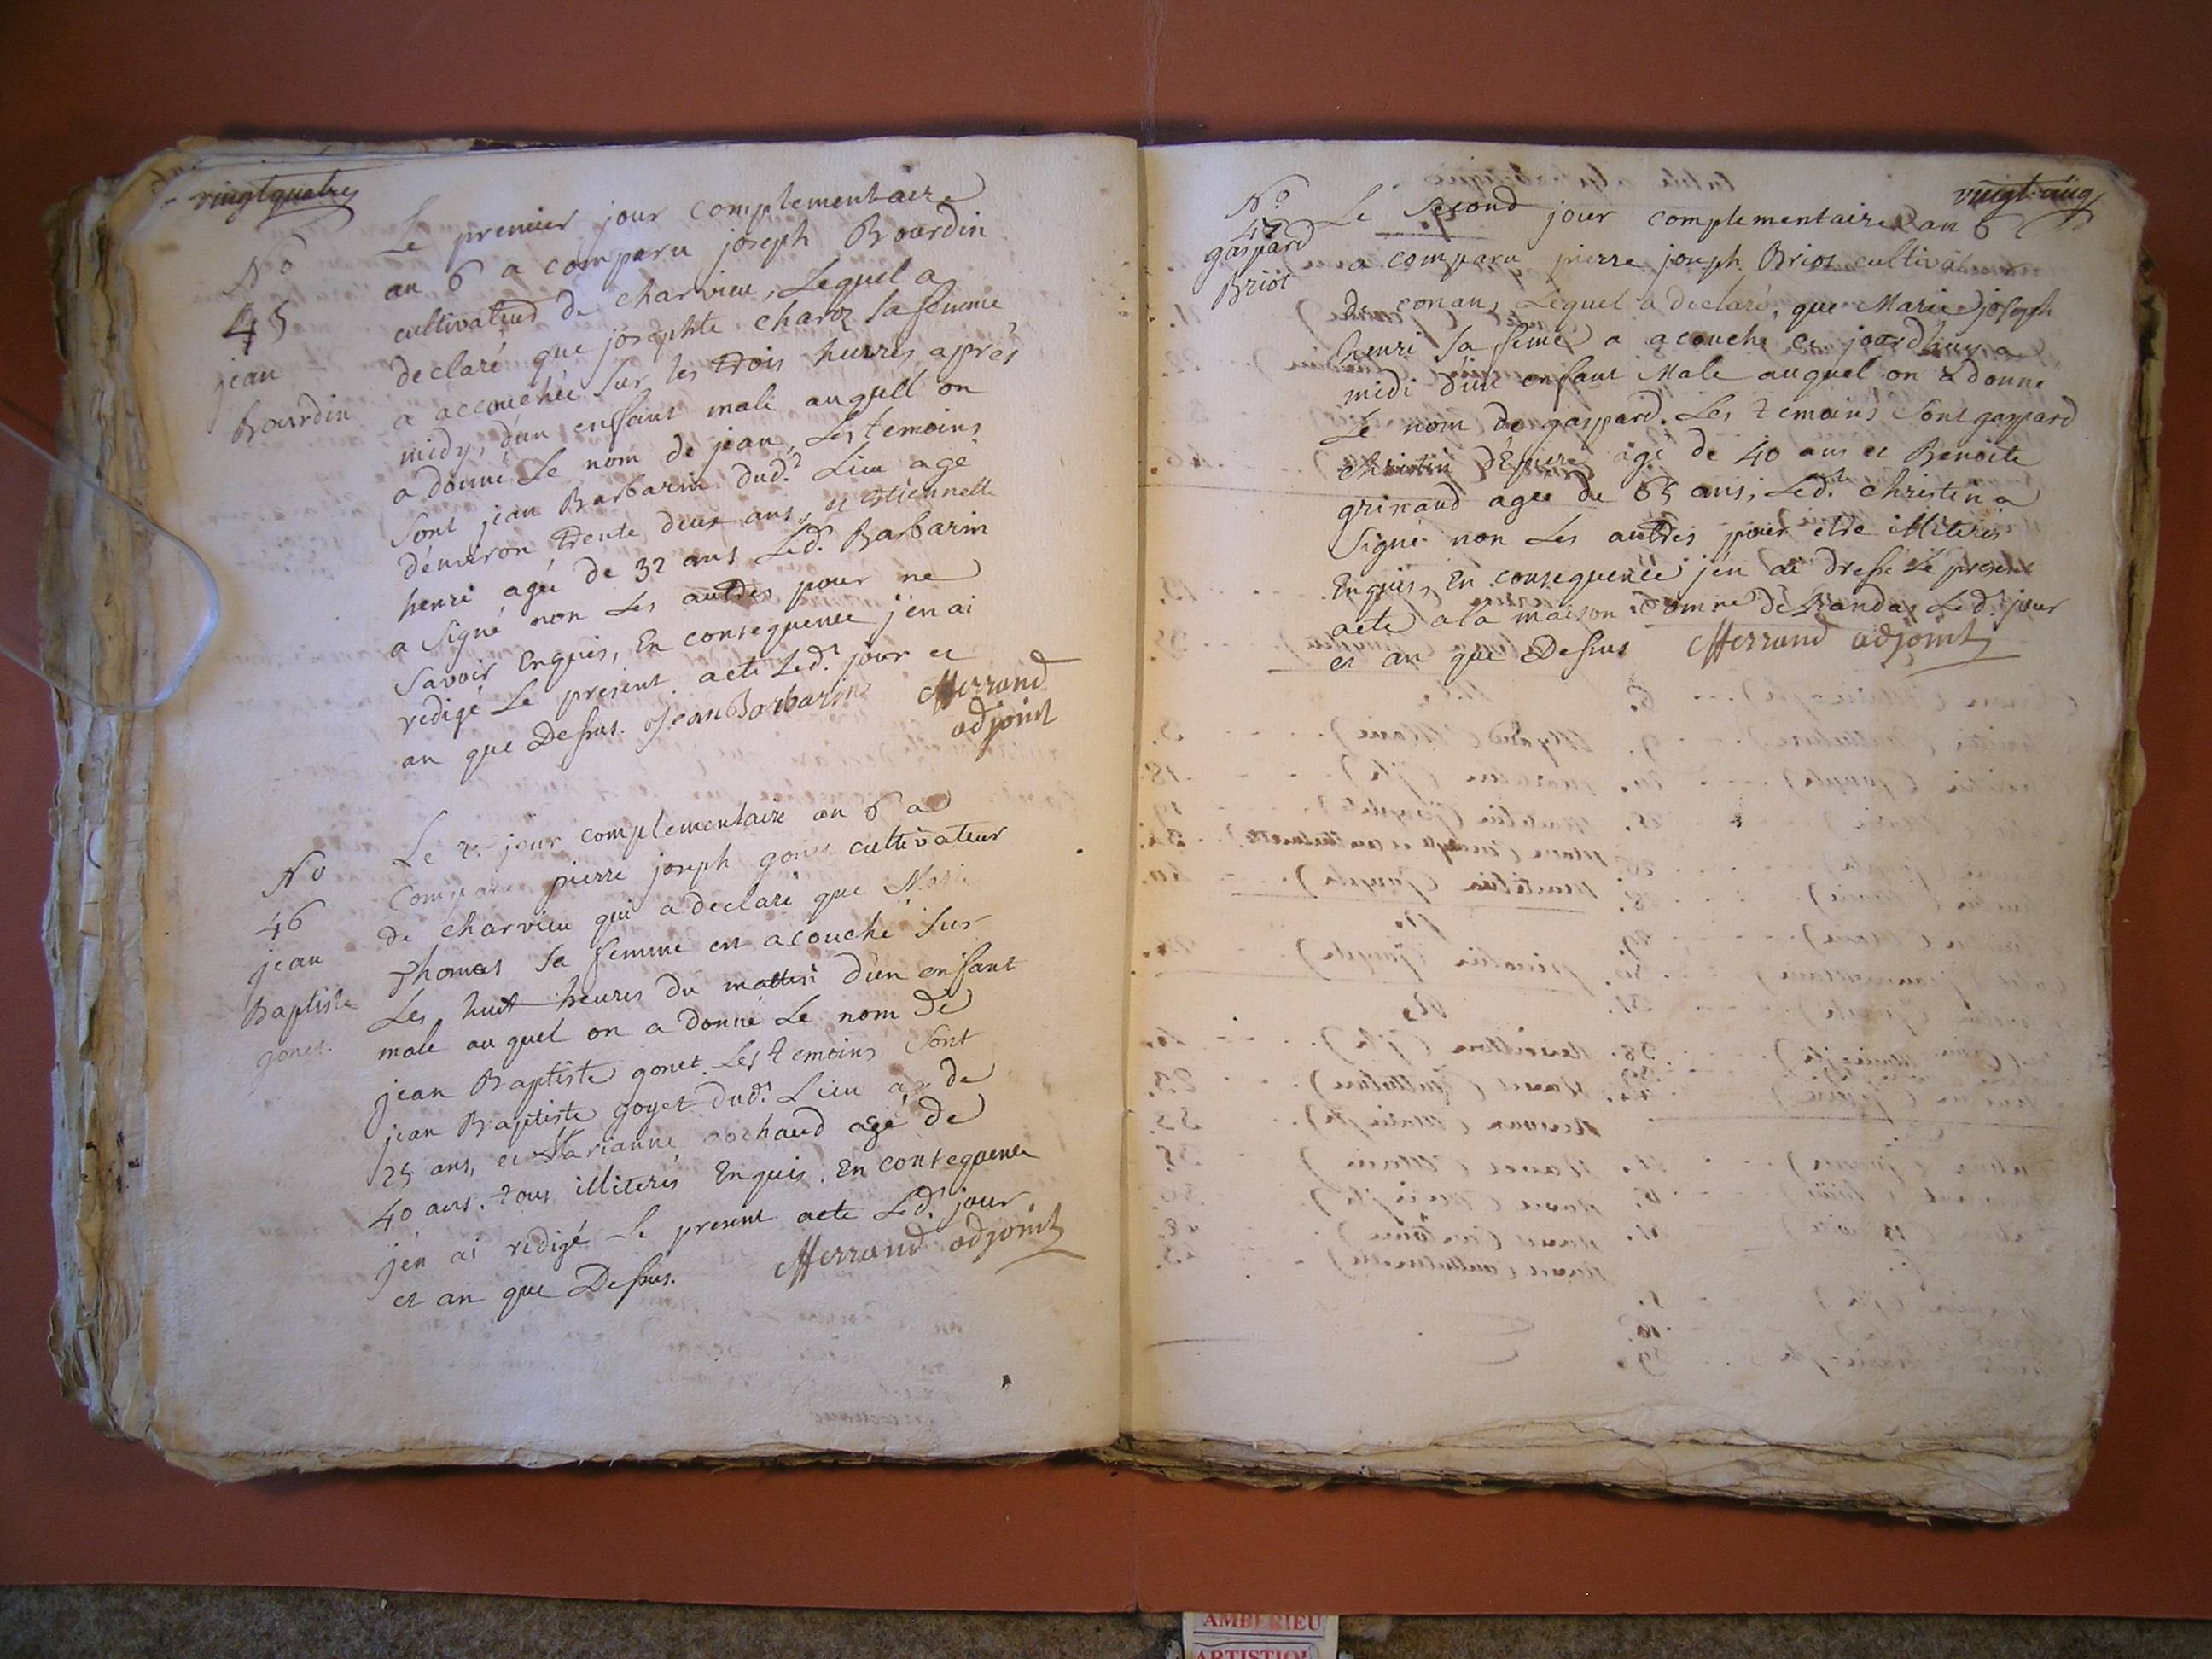 vingtquatre
No
45
jean
Bourdin
Le premier jour complementaire
an 6 a comparu joseph Bourdin
cultivateur de charvieu, Lequel a
declaré que josephte charoz sa femme
a accouchée sur les trois heures après
midy, d'un enfant male auquell on
a donné Le nom de jean, Les temoins
Sont jean Barbarin dud. Lieu agé
d'environ trente deux ans, et Etiennette
henri agée de 32 ans Led. Barbarin
a signé non Les autres pour ne
Savoir Enquis, En consequence j'en ai
redigé Le present acte Led. jour et
an que Dessus. Jean Barbarin Merrand
adjoint
No
46
jean
Baptiste
gonet.
Le 2. jour complementaire an 6 a
Comparu pierre joseph gonet cultivateur
de charvieu qui a declaré que Marie
Thomas sa femme est acouché sur
Les huit heures du matin d'un enfant
male auquel on a donné Le nom de
jean Baptiste gonet. Les temoins sont
jean Baptiste goyet dud. Lieu de
25 ans, et Marianne agé de
40 ans. tous illiterés Enquis. En consequence
j'en ai redigé Le present acte Led. jour
et an que Dessus. Merrand adjoint
vingt-cinq
No
47
gaspard
Briot
Le Second jour complementaire an 6
a comparu pierre joseph Briot cultivateur
de conan, Lequel a declaré, que Marie joseph
henri sa feme a acouché ce jourdhuy a
midi d'un enfant Male auquel on a donné
Le nom de gaspard. Les temoins sont gaspard
christin agé de 40 ans et Benoite
grinand agée de 65 ans, Led. christin a
Signé non Les autres pour etre illiterés
Enquis, En consequence j'en ai dressé Le present
acte a la maison comne de Randas Led. jour
et an que Dessus Merrand adjoint
AMBERIEU
ARTISTIQU